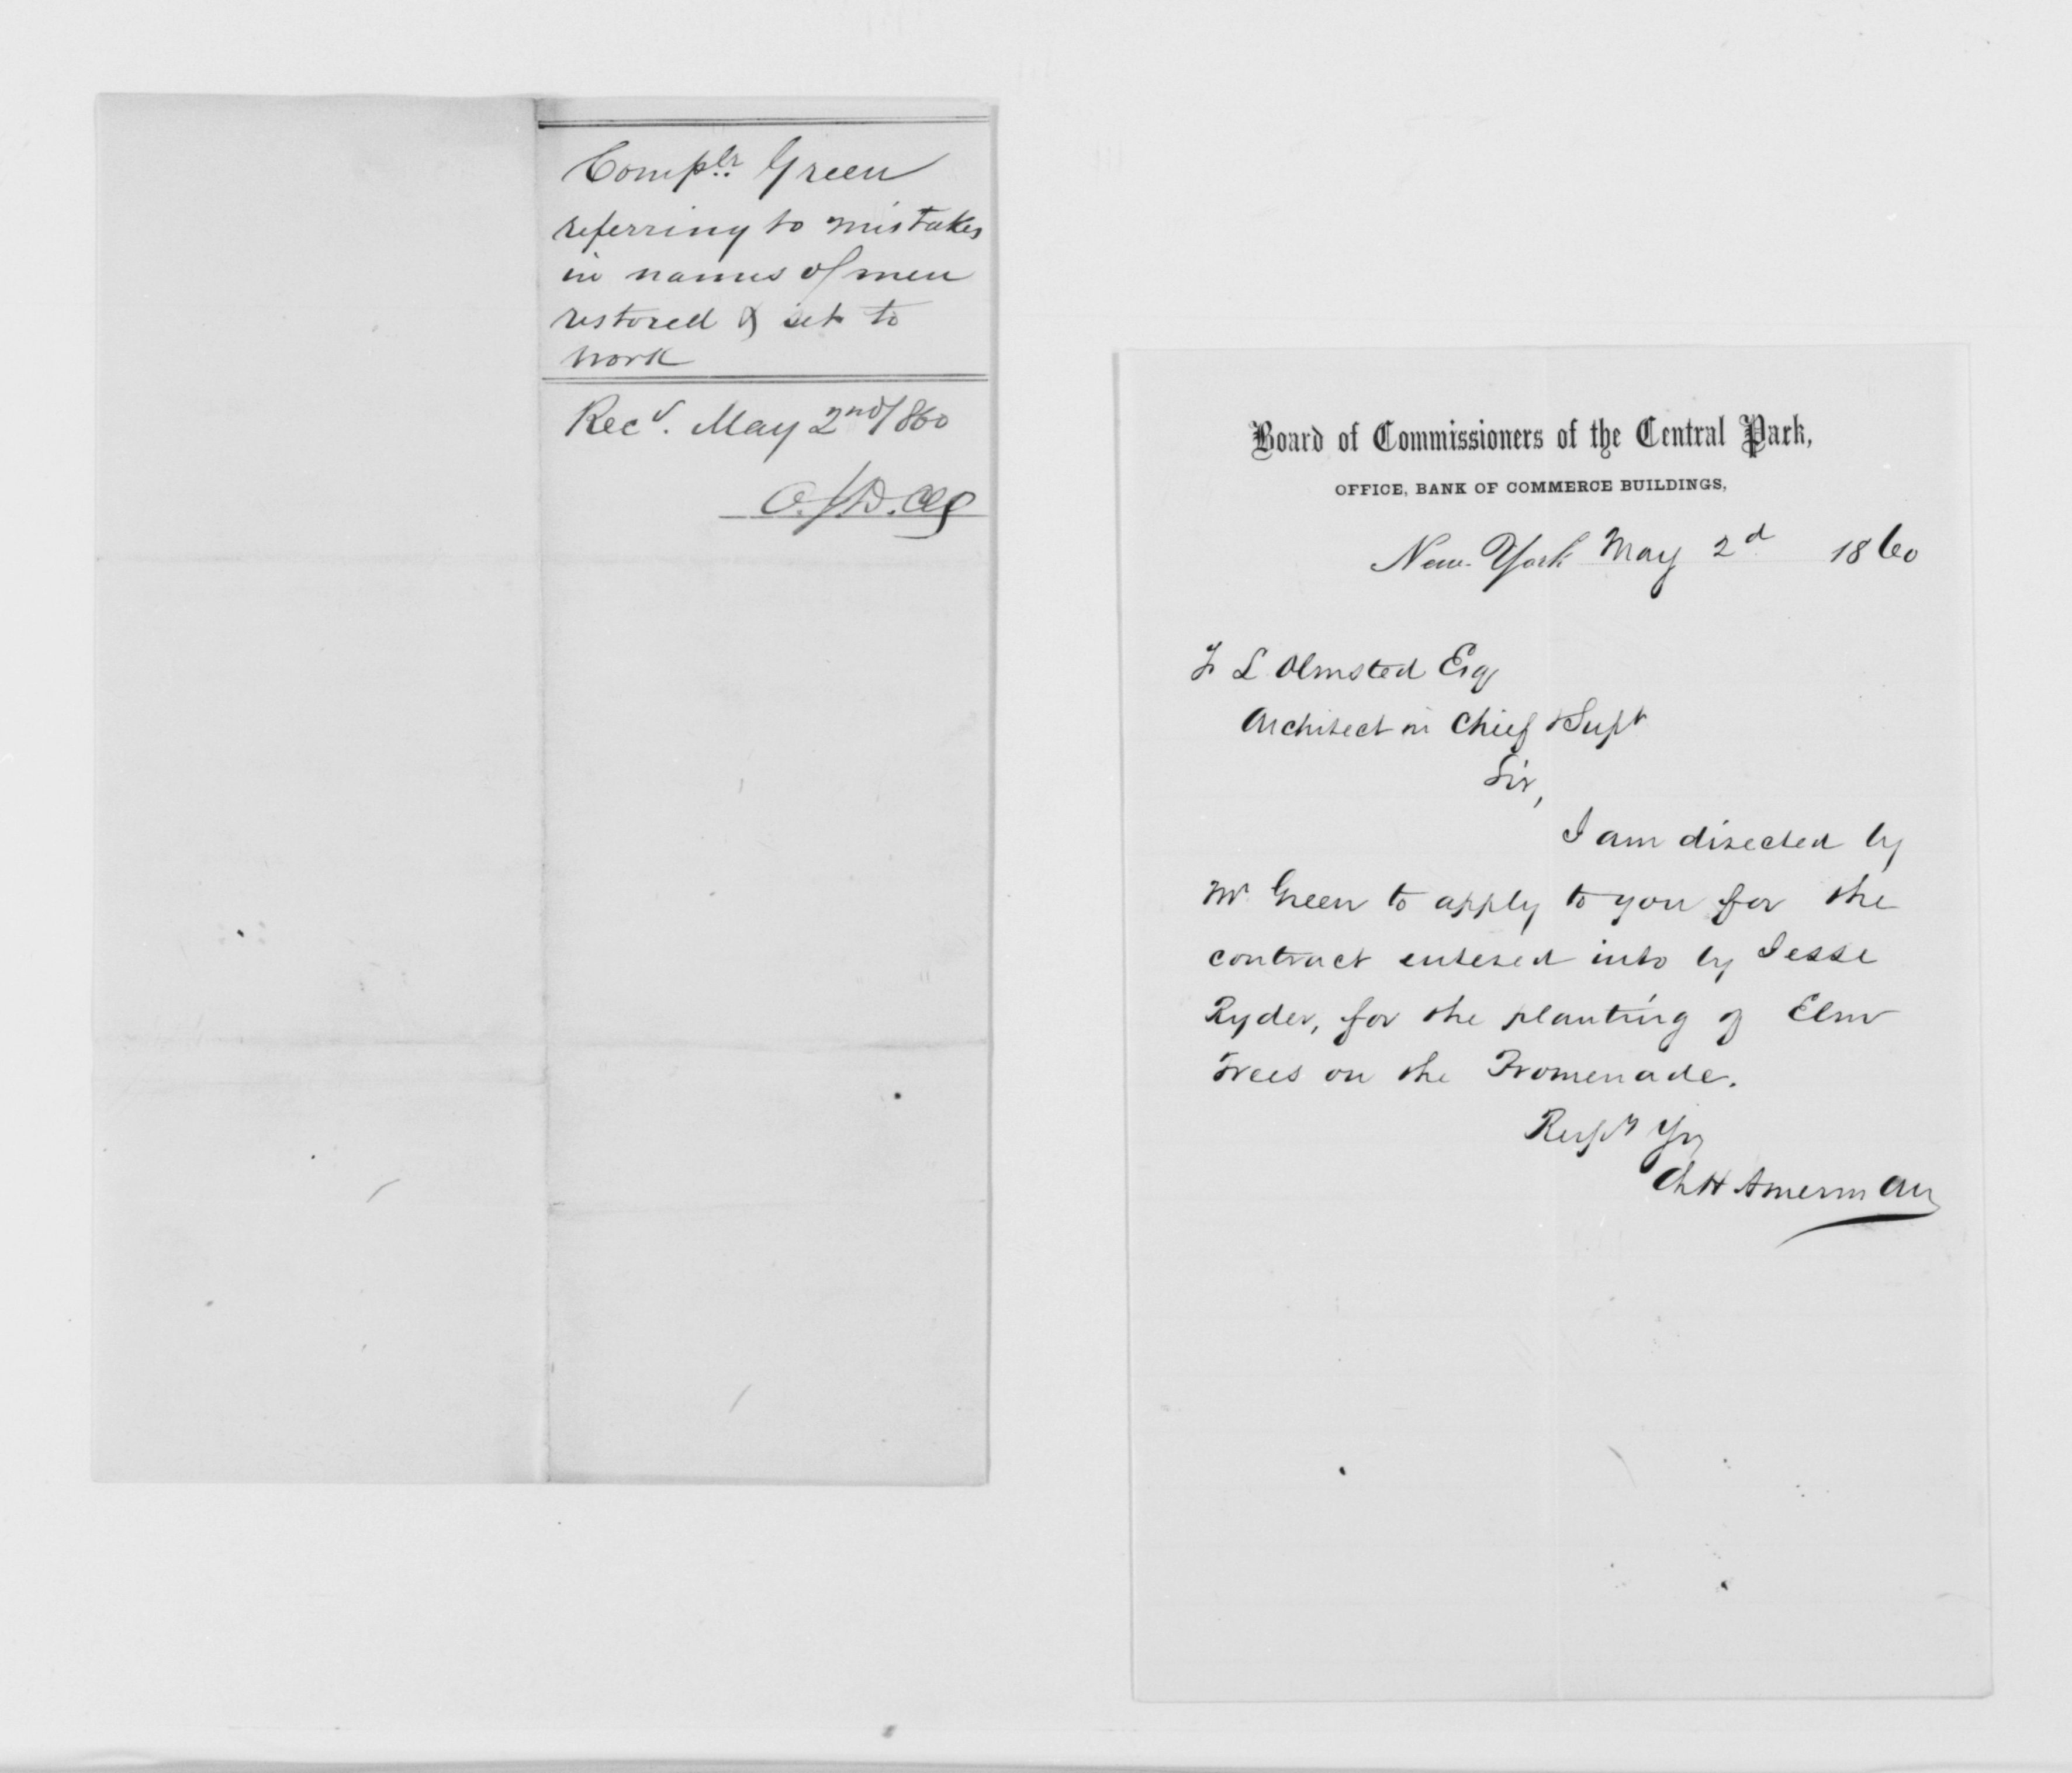 Complr. Green
referring to mistakes
in names of men
restored & set to
work
Recd. May 2nd/860
Board of Commissioners of the Central Park,
OFFICE, BANK OF COMMERCE BUILDINGS,
New-York May 2d 1860
F L Olmsted Esq
Architect in Chief & Supt
Sir,
I am directed by
Mr Green to apply to you for the
contract entered into by Jesse
Ryder, for the planting of Elm
Trees on the Promenade.
Respy Yrs
Ch H Amerman